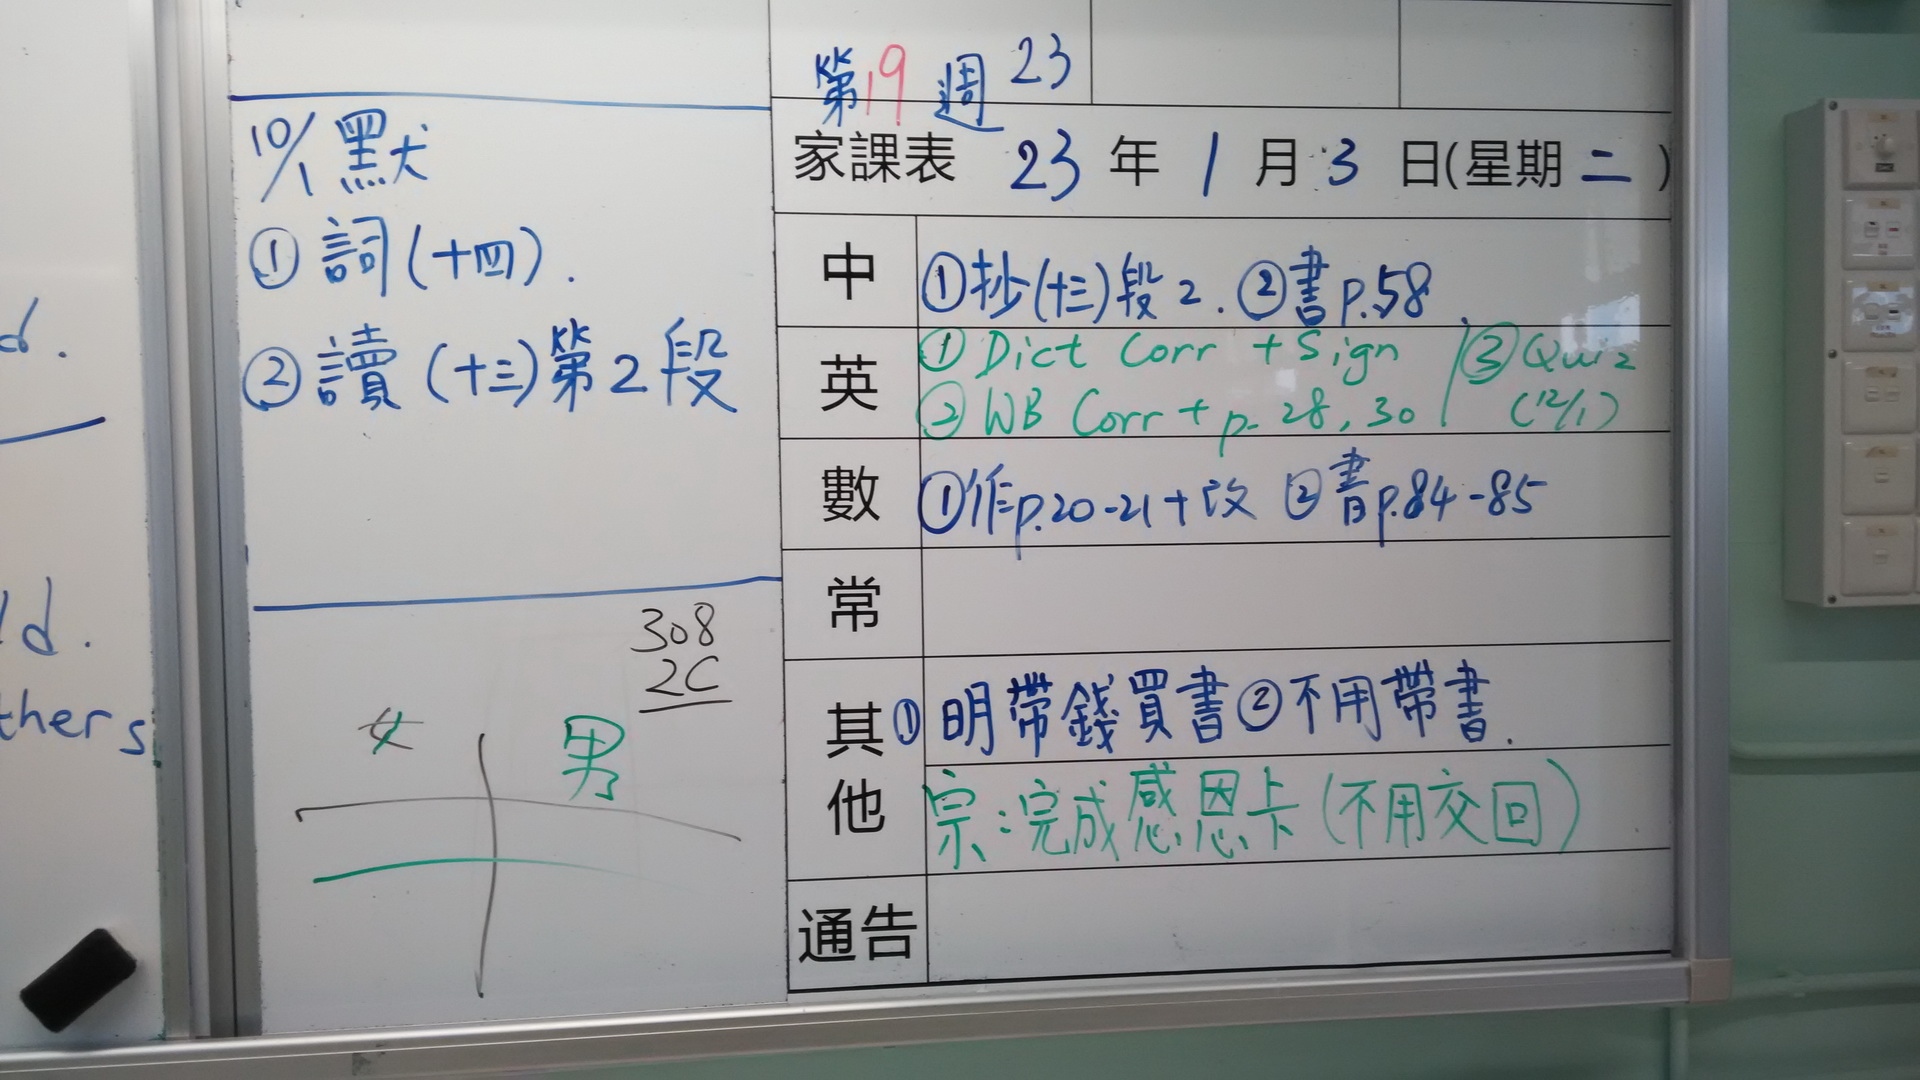 d.
ld.
thers
10/1 默
① 詞(十四).
② 讀(十三)第2段
308
2C
女 男
第19週 23
家課表 23年1月3日(星期二)
中 ①抄(十三)段2. ②書p.58.
英 ① Dict Corr + Sign ③ Quiz
② WB Corr + p. 28, 30 (12/1)
數 ①作p.20-21+改 ②書p.84-85
常
其他 ①明帶錢買書②不用帶書.
宗:完成感恩卡(不用交回)
通告